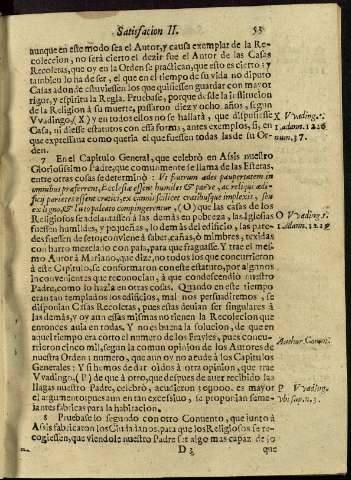 Satisfacion II. 53
aunque en este modo sea el Autor, y causa exemplar de la Re-
coleccion, no será cierto el dezir fue el Autor de las Casas
Recoletas, que oy en la Orden se practican, que esto es cierto; y
tambien lo ha de ser, el que en el tiempo de su vida no diputo
Casas adonde estuviessen los que quisiessen guardar con mayor
rigor, y espiritu la Regla. Pruebase, porque desde la institucion
de la Religion à su muerte, passaron diez y ocho años, segun
Vvadingo, (X) y en todos ellos no se hallarà, que dispusiesse
Casa, ni diesse estatutos con essa forma, antes exemplos, si, en
que expressiva como queria el que fuessen todas las de su Or-
den.
X Vvading. t.
1. ad ann. 1226
num. 37.
7 En el Capitulo General, que celebrò en Assis nuestro
Gloriosissimo Padre, que comunmente se llama de las Esteras,
entre otras cosas determinò: Ut fratrum ædes paupertatem in
omnibus præferrent, Ecclesiæ essent humiles & parvæ, ac reliqui ædi-
ficij parietes essent cratici, ex vimine scilicet cratibusque implexis, seu
ex ligno, & luto paleato compingerentur. (O) que las casas de los
Religiosos se adelantassen à las demàs en pobreza, las Iglesias
fuessen humildes, y pequeñas, lo demàs del edificio, las pare-
des fuessen de seto; conviene à saber, cañas, ò mimbres, texidas
con barro mezclado con paja, para que fraguasse. Y trae el mes-
mo Autor à Mariano, que dize, no todos los que concurrieron
à este Capitulo, se conformaron con este estatuto, por algunos
inconvenientes que reconocian, à que condescendiò nuestro
Padre, como lo hazia en otras cosas. Quando en este tiempo
eran tan templados los edificios, mal nos persuadiremos, se
disponian Casas Recoletas, pues essas devian ser singulares à
las demàs, y oy aun essas mismas no tienen la Recoleccion que
entonces avia en todas. Y no es buena la solucion, de que en
aquel tiempo era corto el numero de los Frayles, pues concu-
rrieron cinco mil, segun la comun opinion de los Autores de
nuestra Orden; numero, que aun oy no acude à los Capitulos
Generales: Y si hemos de dar oidos à otra opinion, que trae
Vvadingo, (P) de que à otro, que despues de aver recibido las
llagas nuestro Padre, celebrò, acudieron 30000. es mayor
el argumento; pues aun en tan excessivo, se proponian seme-
lantes fabricas para la habitacion.
O Vvading. t.
1. ad ann. 1219
Author. Comm.
P Vvading.
vbi sup. n. 3.
8 Pruebase lo segundo con otro Convento, que junto à
Assis fabricaron los Ciudadanos, para que los Religiosos se re-
cogiessen, que viendole nuestro Padre ser algo mas capaz de lo
D 3 que